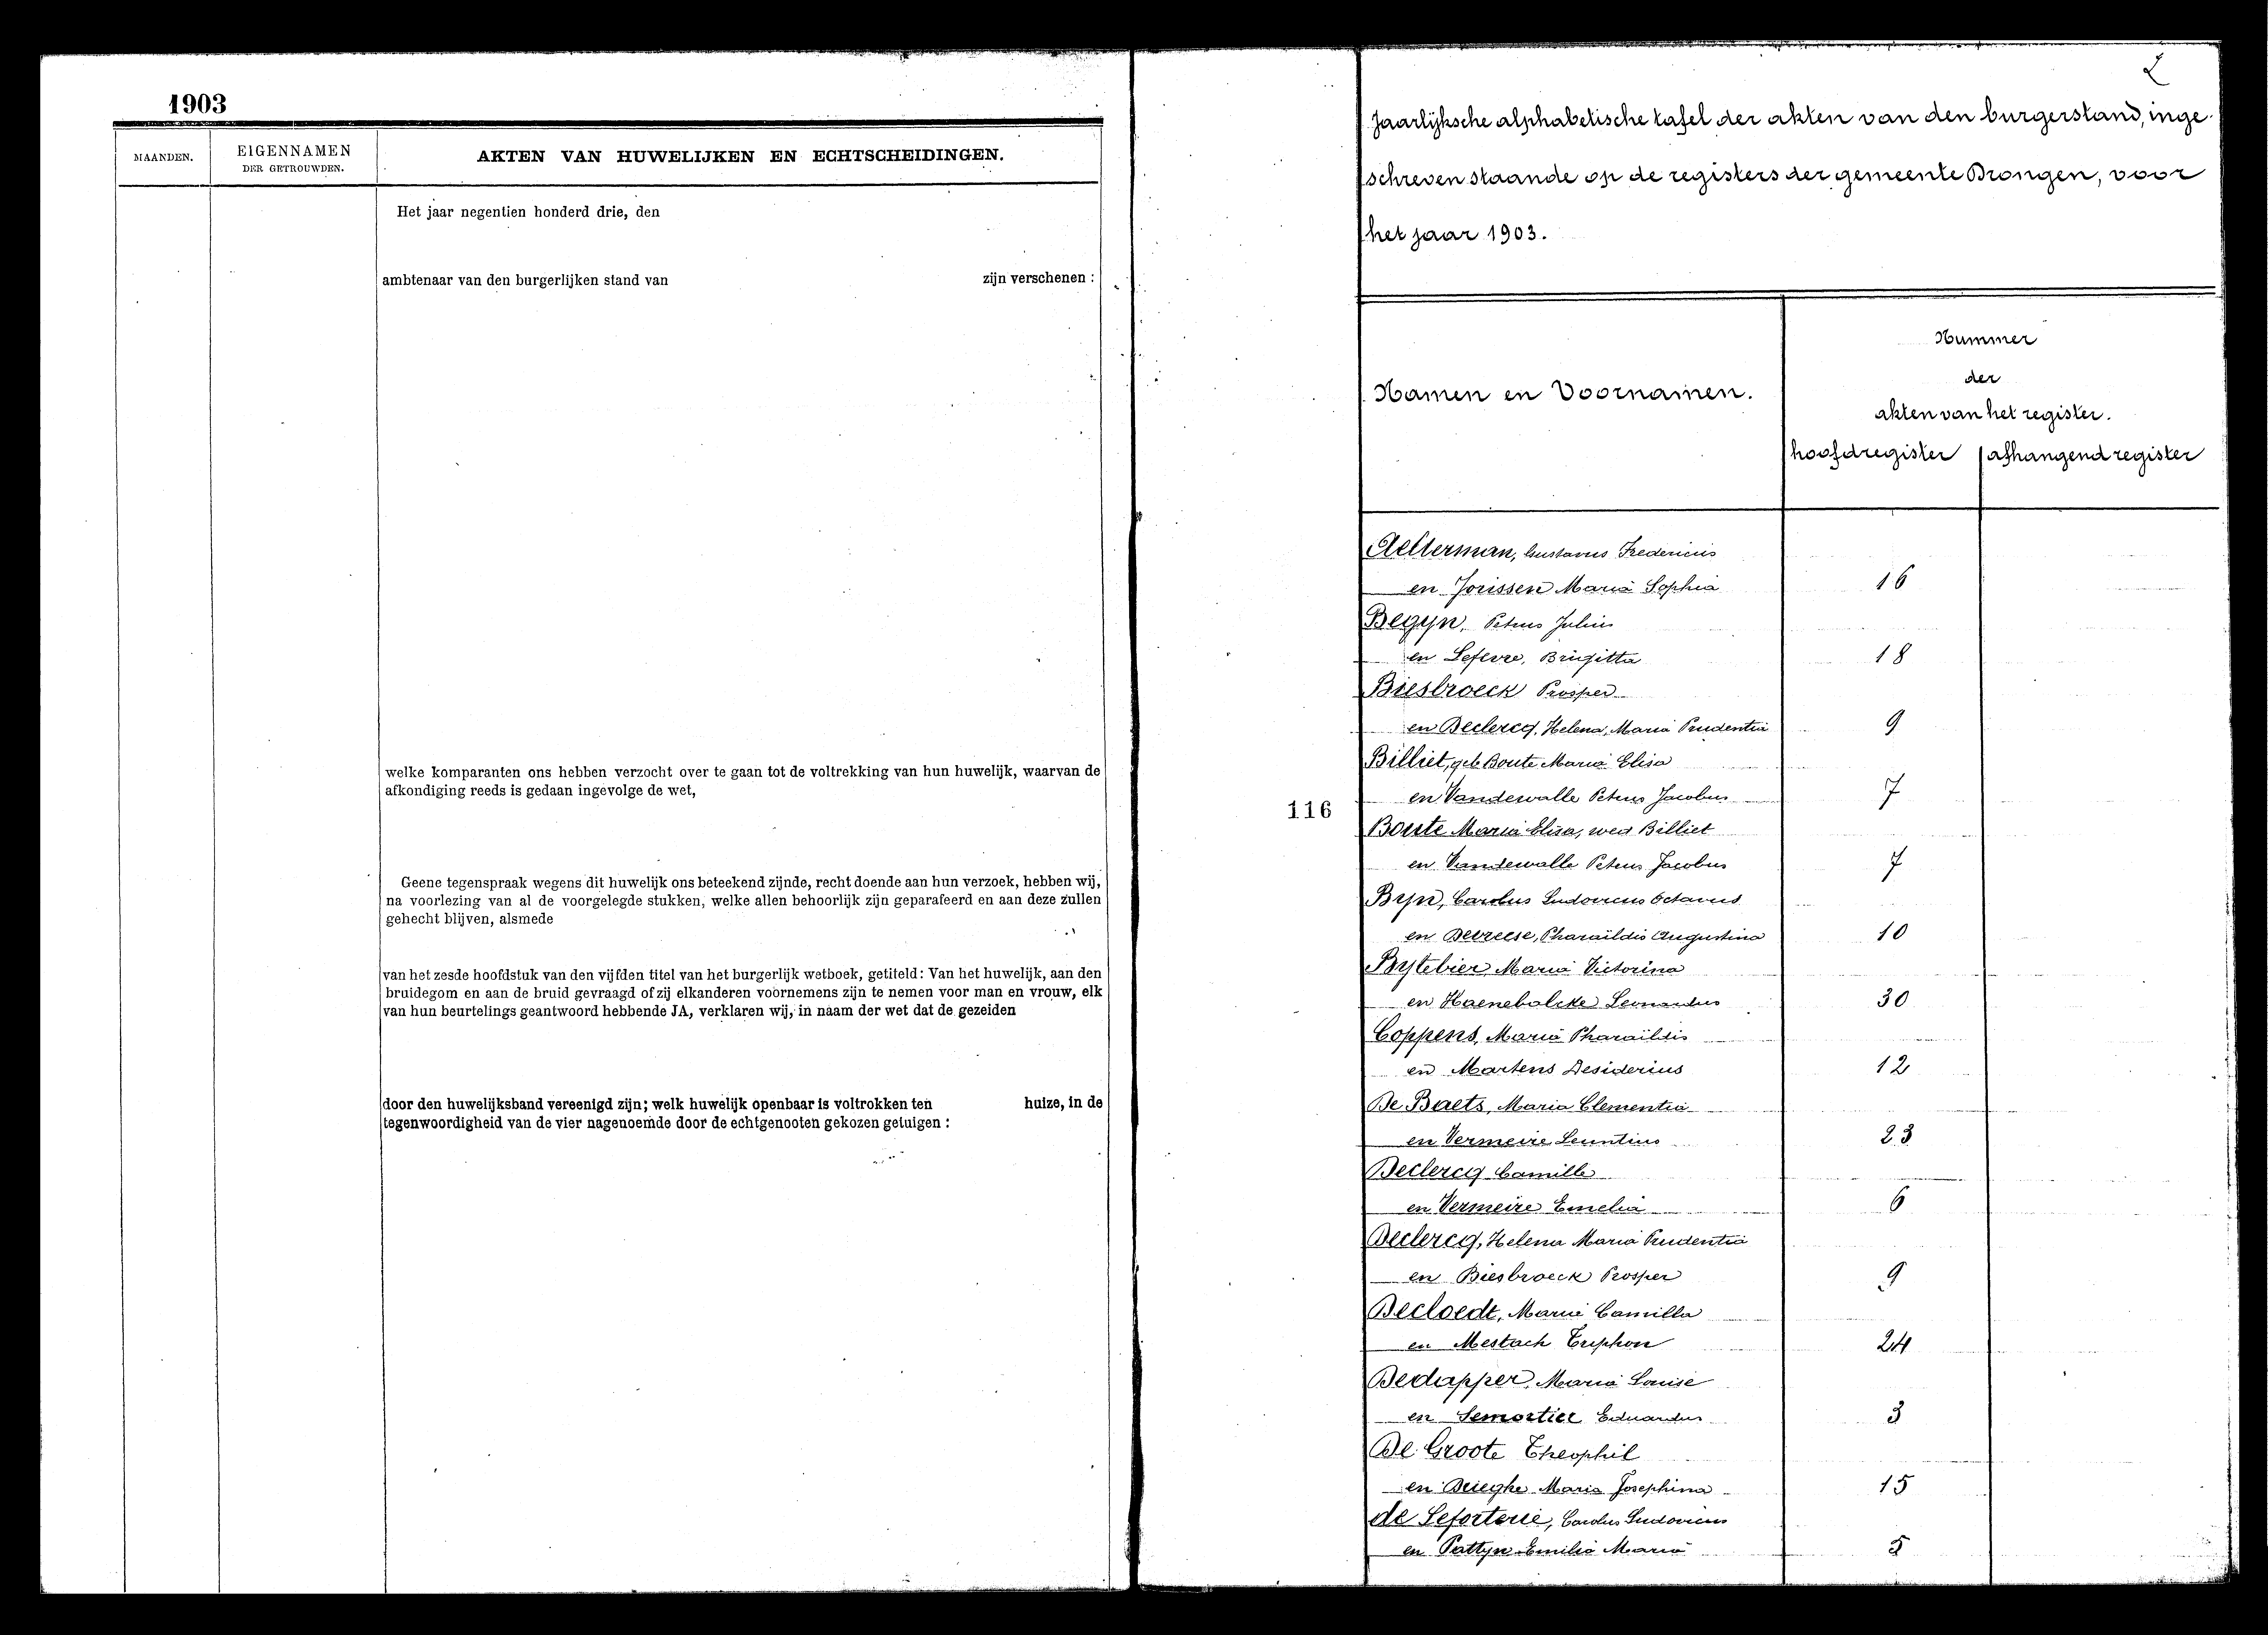 1903
MAANDEN.
EIGENNAMEN
DER GETROUWDEN.
AKTEN VAN HUWELIJKEN EN ECHTSCHEIDINGEN.
Het jaar negentien honderd drie, den
ambtenaar van den burgerlijken stand van zijn verschenen :
welke komparanten ons hebben verzocht over te gaan tot de voltrekking van hun huwelijk, waarvan de
afkondiging reeds is gedaan ingevolge de wet,
Geene tegenspraak wegens dit huwelijk ons beteekend zijnde, recht doende aan hun verzoek, hebben wij,
na voorlezing van al de voorgelegde stukken, welke allen behoorlijk zijn geparafeerd en aan deze zullen
gehecht blijven, alsmede
van het zesde hoofdstuk van den vijfden titel van het burgerlijk wetboek, getiteld: Van het huwelijk, aan den
bruidegom en aan de bruid gevraagd of zij elkanderen voornemens zijn te nemen voor man en vrouw, elk
van hun beurtelings geantwoord hebbende JA, verklaren wij, in naam der wet dat de gezeiden
door den huwelijksband vereenigd zijn; welk huwelijk openbaar is voltrokken ten huize, in de
tegenwoordigheid van de vier nagenoemde door de echtgenooten gekozen getuigen :
116
Jaarlijksche alphabetische tafel der akten van den burgerstand, inge-
schreven staande op de registers der gemeente Drongen, voor
het jaar 1903.
Namen en Voornamen.
Nummer
der
akten van het register.
hoofdregister afhangend register
Aelterman, Gustavus Fredericus
en Jorissen Maria Sophia 16
Begyn, Petrus Julius
en Lefevre, Brigitta 18
Biesbroeck Prosper
en Declercq, Helena, Maria Prudentia 9
Billiet, geb Boute Maria Elisa
en Vandewalle Petrus Jacobus 7
Boute Maria Elisa, wed Billiet
en Vandewalle Petrus Jacobus 7
Byn, Carolus Ludovicus Octavus
en Devreese, Pharaïldis Augustina 10
Bytebier Maria Victorina
en Haenebalcke Leonardus 30
Coppens, Maria Pharaïldis
en Martens Desiderius 12
De Baets, Maria Clementia
en Vermeire Leontius 23
Declercq Camille
en Vermeire Emelia 6
Declercq, Helena Maria Prudentia
en Biesbroeck Prosper 9
Decloedt, Marie Camilla
en Mestach Triphon 24
Dedapper, Maria Louise
en Lemortier Eduardus 3
De Groote Theophil
en Drieghe Maria Josephina 15
de Leforterie, Carolus Ludovicus
en Pattyn Emilia Maria 5